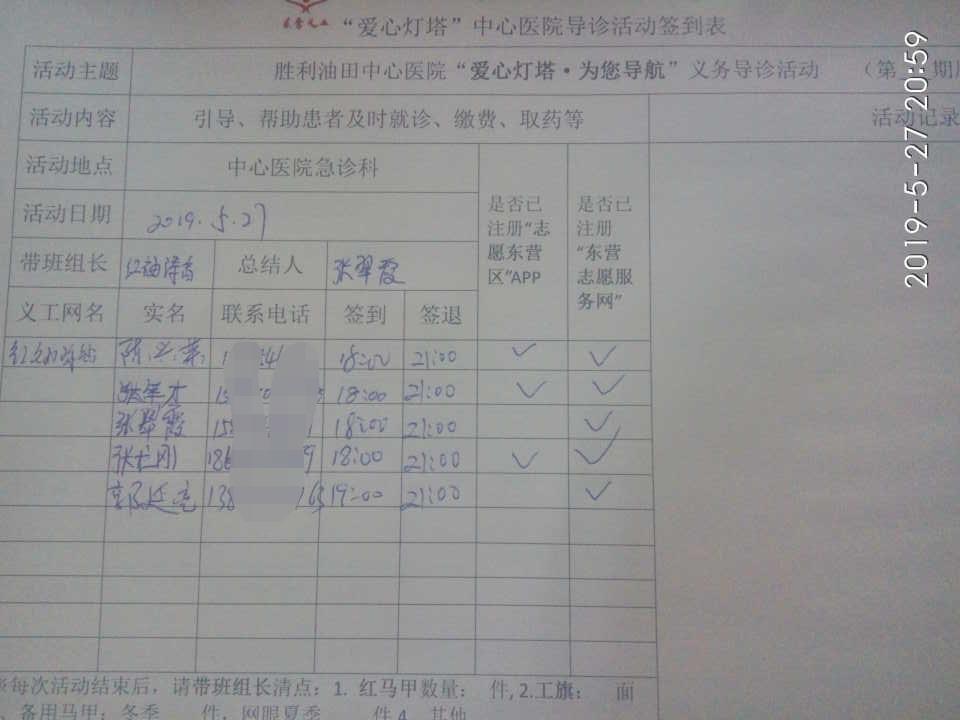 “爱心灯塔”中心医院导诊活动签到表
活动主题 胜利油田中心医院“爱心灯塔·为您导航”义务导诊活动 （第 期
活动内容 引导、帮助患者及时就诊、缴费、取药等 活动记录
活动地点 中心医院急诊科
是否已注册“志愿东营区”APP
是否已注册“东营志愿服务网”
活动日期 2019.5.27
带班组长 总结人 张翠霞
义工网名 实名 联系电话 签到 签退
18:00 21:00 ✓ ✓
18:00 21:00 ✓ ✓
张翠霞 18:00 21:00 ✓
18:00 21:00 ✓ ✓
郭延亮 138 19:00 21:00 ✓
每次活动结束后，请带班组长清点：1. 红马甲数量： 件，2.工旗： 面
备用马甲：冬季 件，网眼夏季 件 4. 其他
2019-5-27 20:59